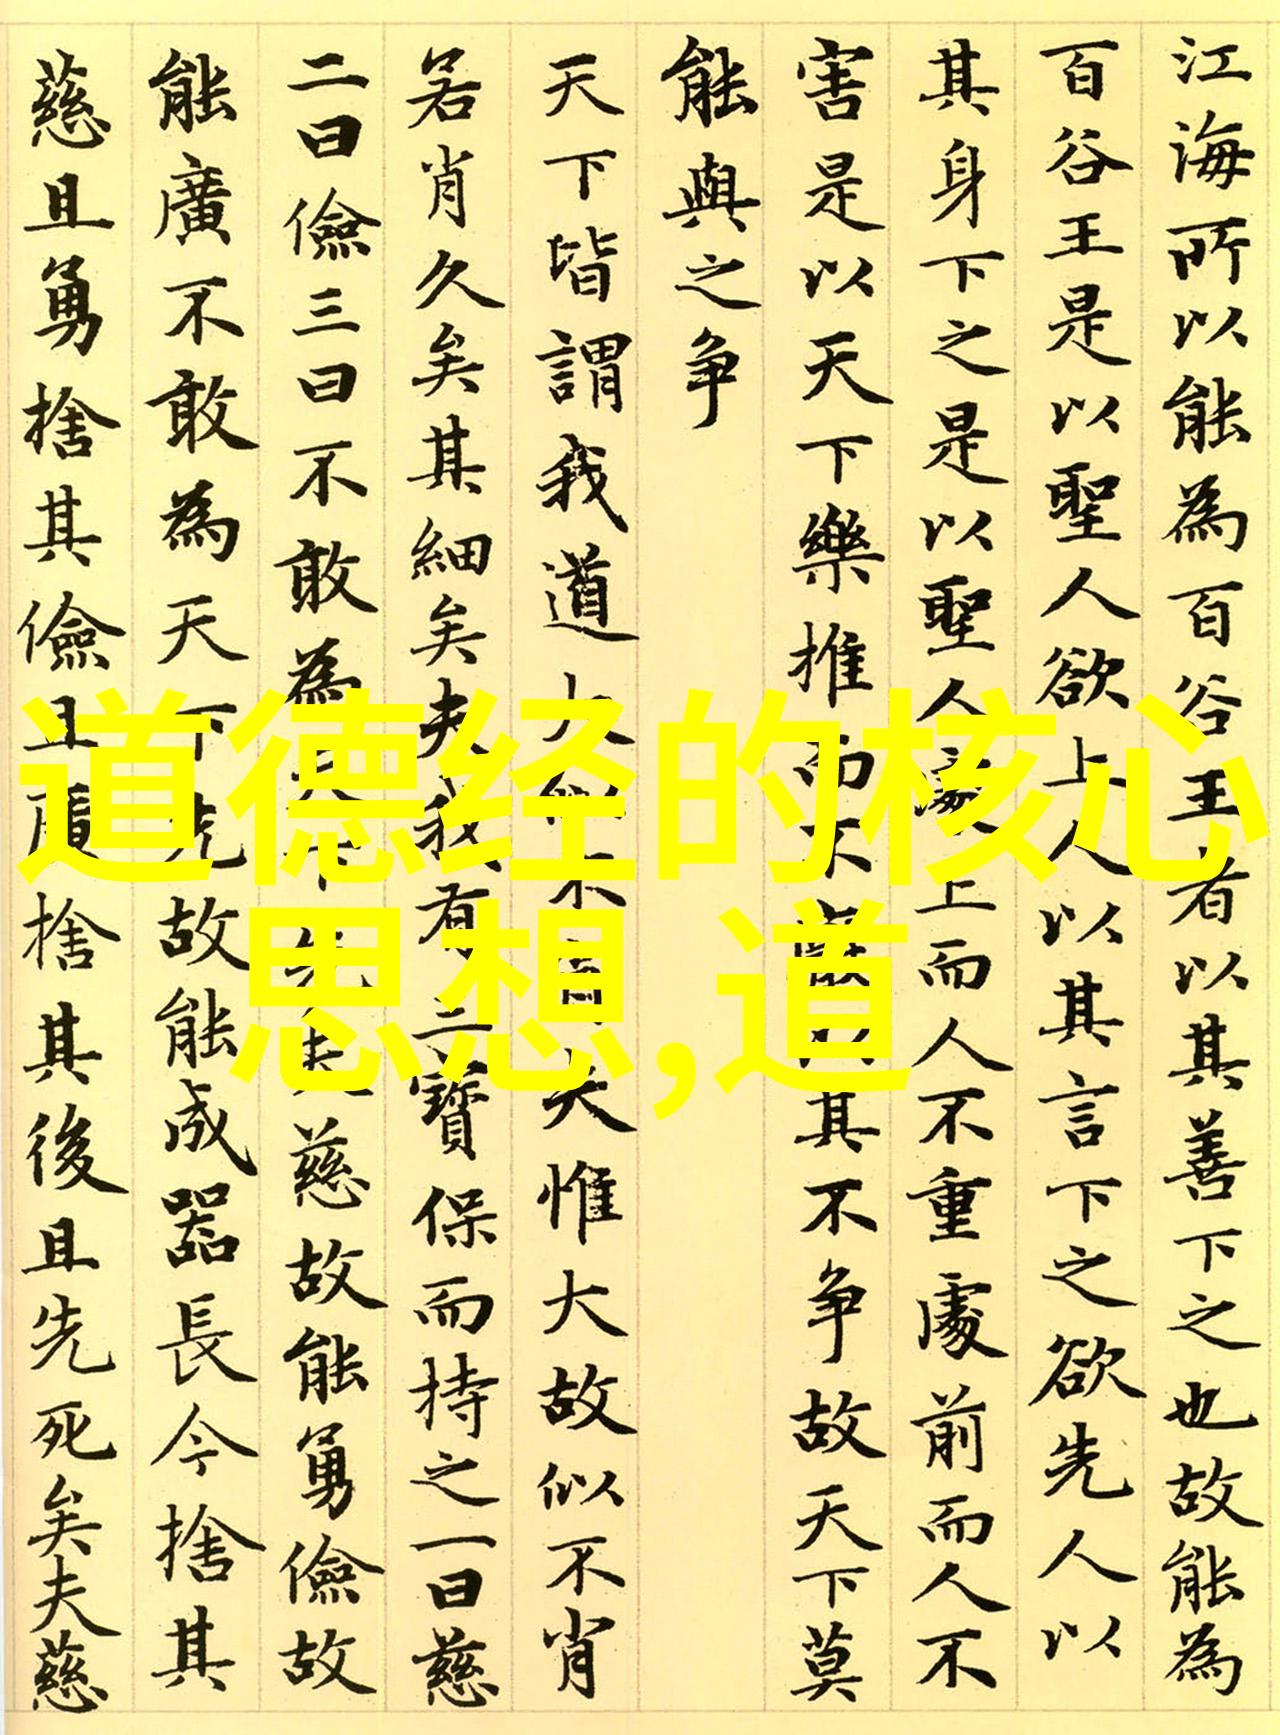 江海所以能為百谷王者以其善下之也故能為
百谷王是以聖人欲上人以其言下之欲先人以
其身下之是以聖人處上而人不重處前而人不
害是以天下樂推而不厭以其不争故天下莫
能與之争
天下皆謂我道大似不肖夫惟大故似不肖
若肖久矣其細矣夫我有三寶保而持之一曰慈
二曰儉三曰不敢為天下先夫慈故能勇儉故
能廣不敢為天下先故能成器長今捨其
慈且勇捨其儉且廣捨其後且先死矣夫慈
道德经的核心
思想,道